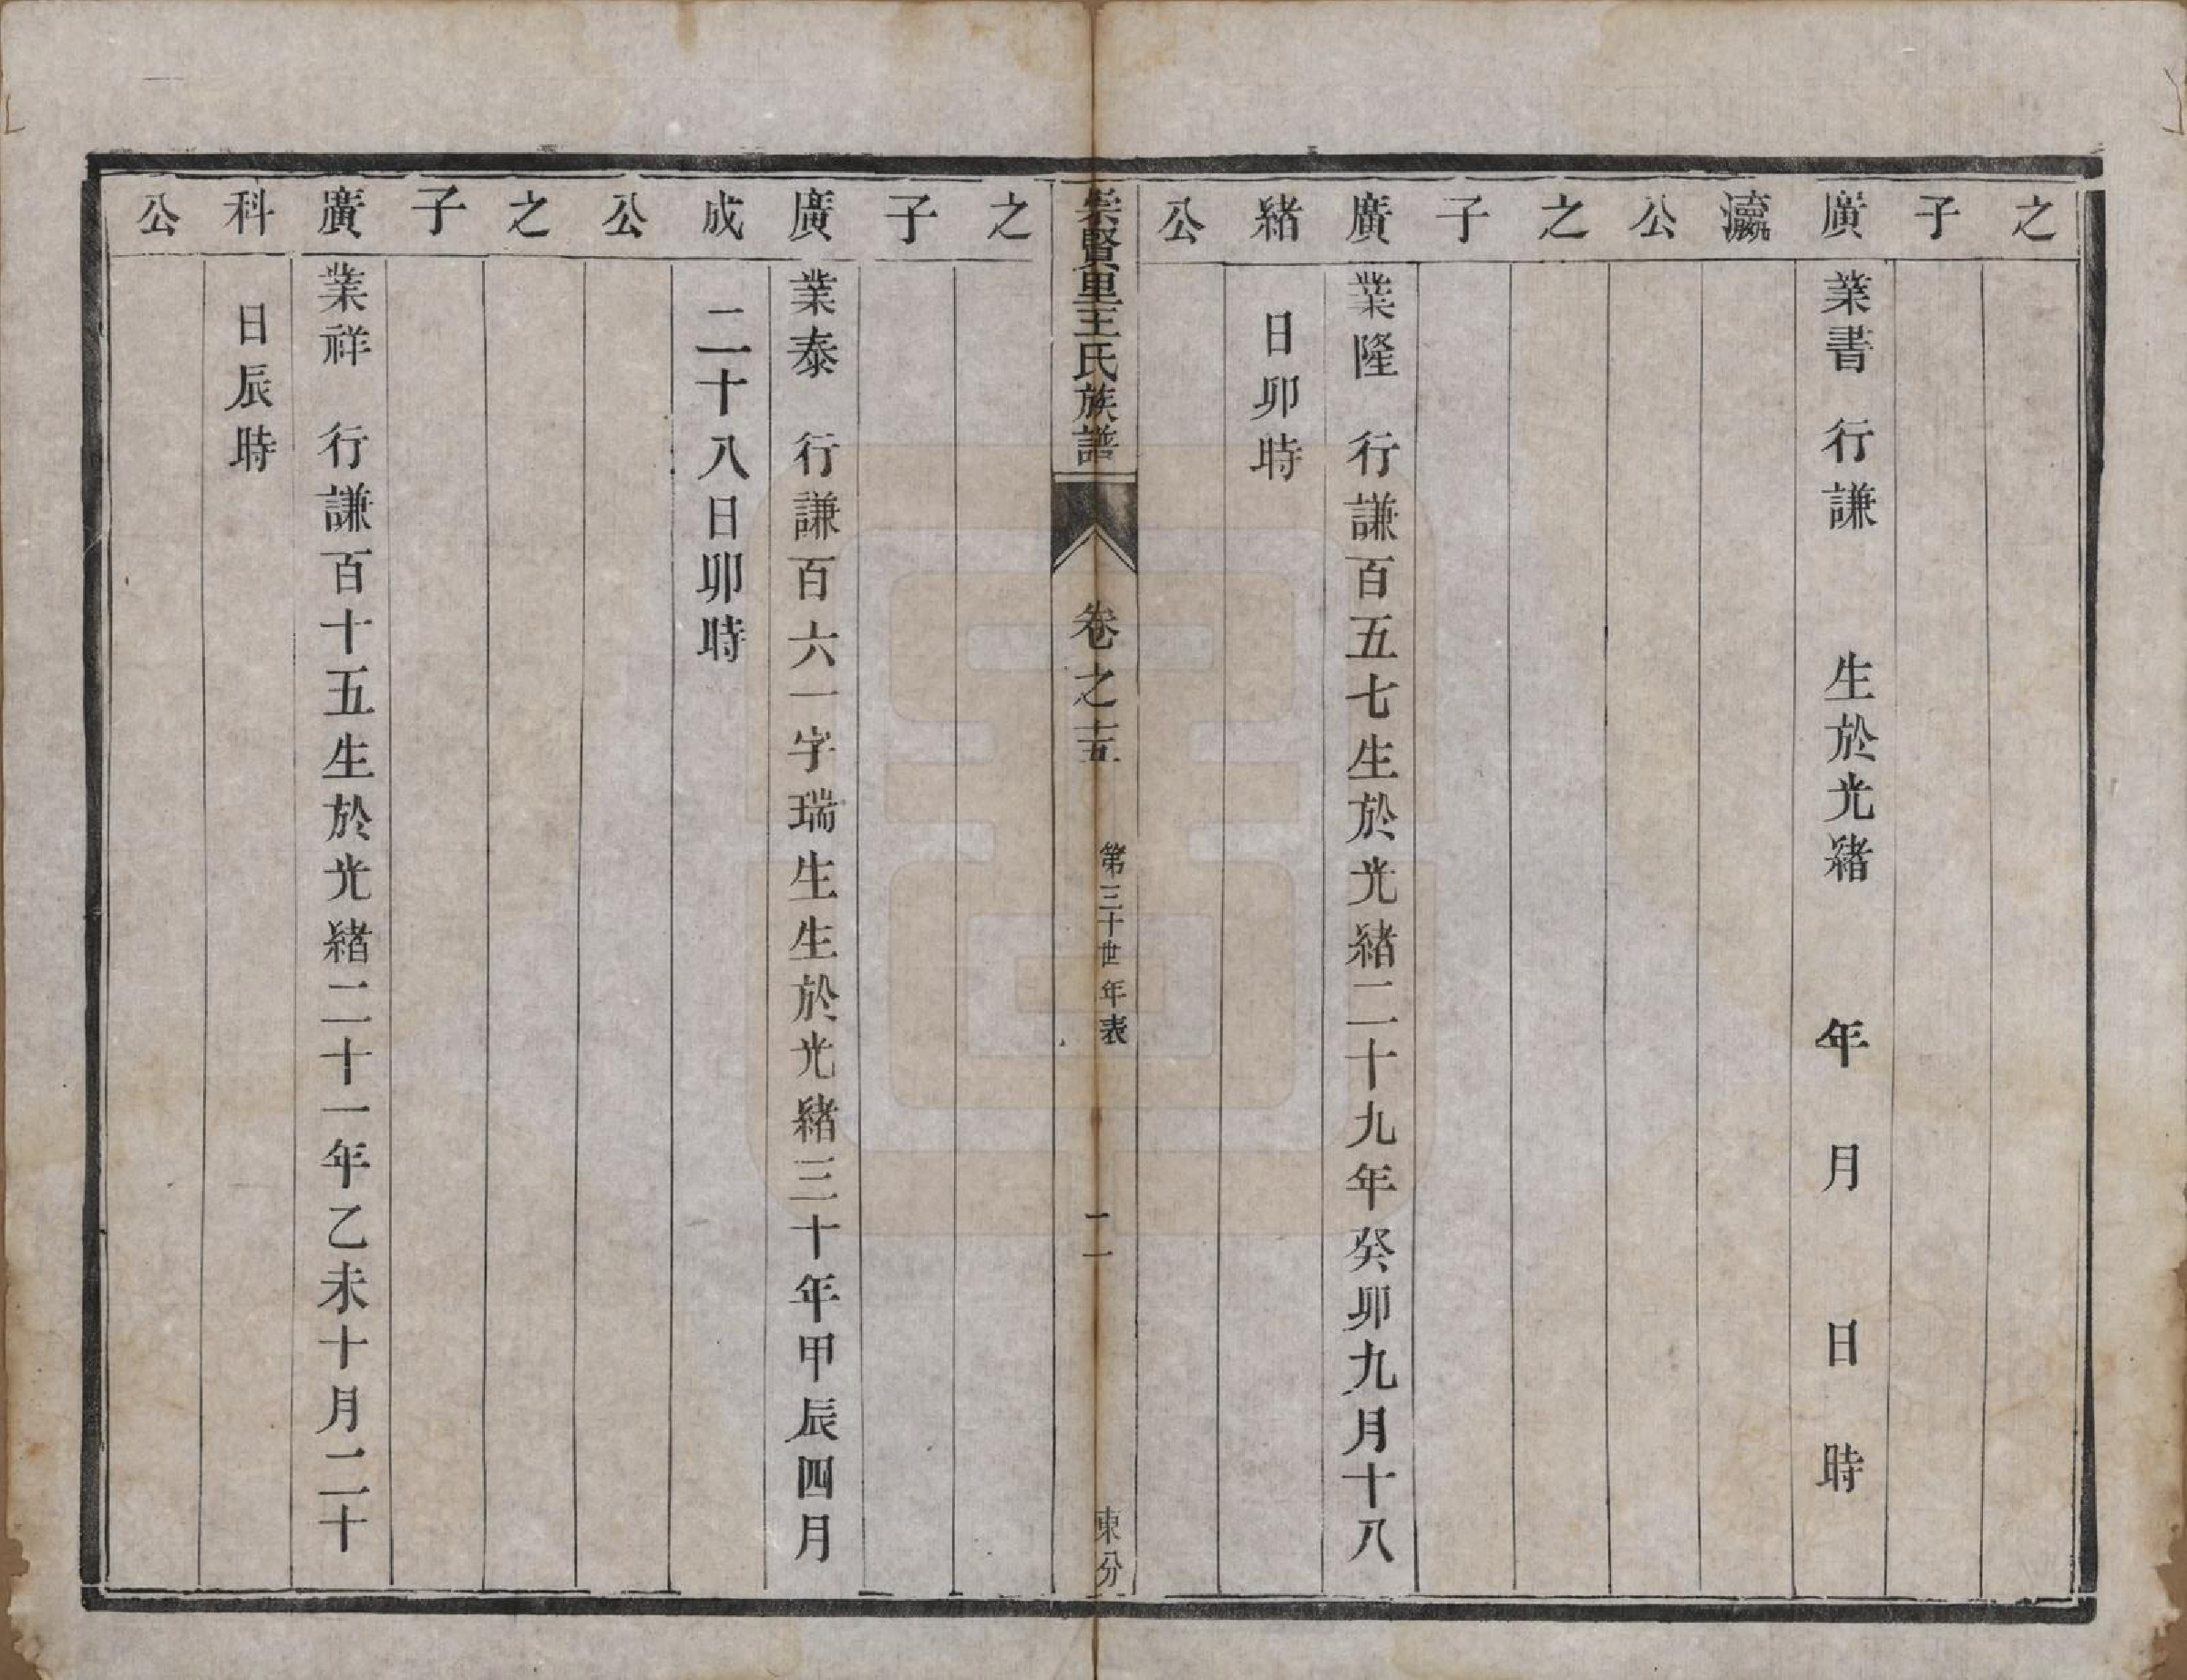 之
子
廣 業書 行謙 生於光緒 年 月 日 時
瀛
公
之
子
廣 業隆 行謙百五七生於光緒二十九年癸卯九月十八
緒 日卯時
公
崇賢里王氏族譜 卷之十五 第三十世年表 二 東分
之
子
廣 業泰 行謙百六一字瑞生生於光緒三十年甲辰四月
成 二十八日卯時
公
之
子
廣 業祥 行謙百十五生於光緒二十一年乙未十月二十
科 日辰時
公